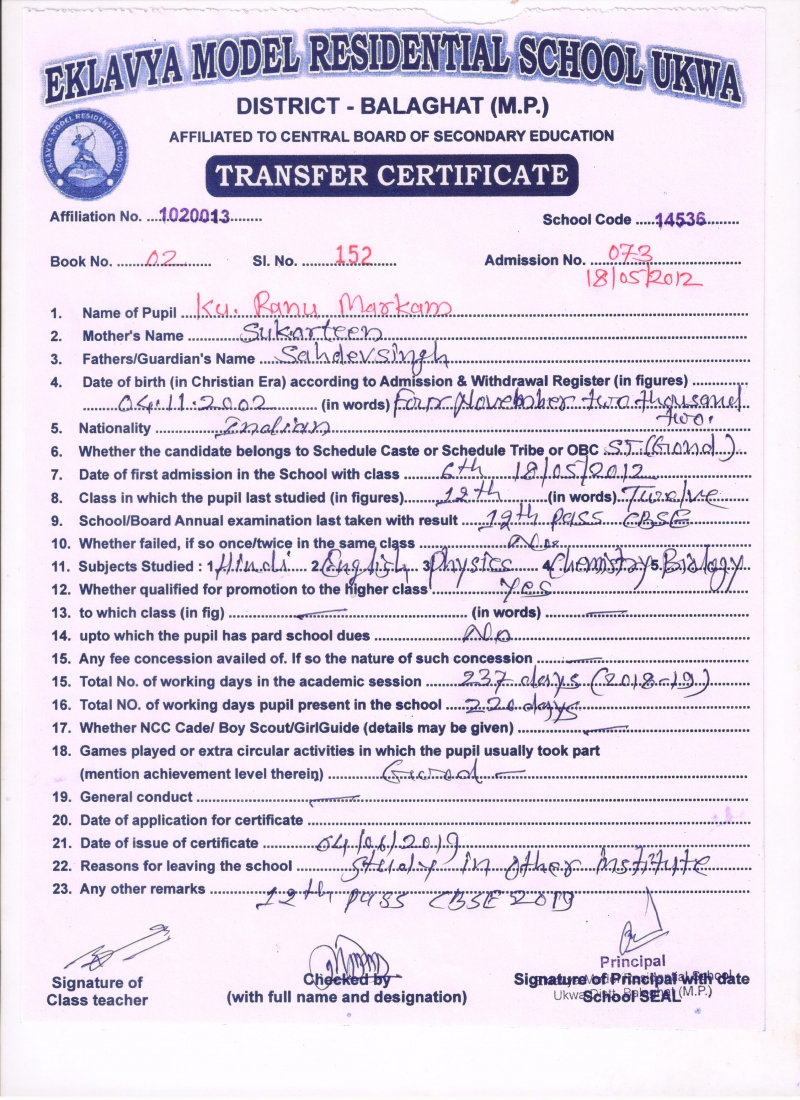 EKLAVYA MODEL RESIDENTIAL SCHOOL UKWA
DISTRICT - BALAGHAT (M.P.)
AFFILIATED TO CENTRAL BOARD OF SECONDARY EDUCATION
EKLAVYA MODEL RESIDENTIAL SCHOOL
TRANSFER CERTIFICATE
Affiliation No. ....1020013........ School Code ....14536........
Book No. ........02........ Sl. No. ........152........ Admission No. ....073........
18/05/2012
1. Name of Pupil ...Ku. Ranu Markam........
2. Mother's Name ........Sukarteen........
3. Fathers/Guardian's Name ....Sahdevsingh........
4. Date of birth (in Christian Era) according to Admission & Withdrawal Register (in figures) ............
........04.11.2002........ (in words) four November two thousand
two.
5. Nationality ........Indian........
6. Whether the candidate belongs to Schedule Caste or Schedule Tribe or OBC ST (Gond)
7. Date of first admission in the School with class ........6th 18/05/2012........
8. Class in which the pupil last studied (in figures)........12th........(in words) Twelve
9. School/Board Annual examination last taken with result ....12th pass CBSE........
10. Whether failed, if so once/twice in the same class ........No........
11. Subjects Studied : 1 Hindi 2. English 3 Physics 4. Chemistry 5. Biology
12. Whether qualified for promotion to the higher class ........yes........
13. to which class (in fig) ........—........ (in words) ........—........
14. upto which the pupil has pard school dues ........No........
15. Any fee concession availed of. If so the nature of such concession ........—........
15. Total No. of working days in the academic session ....237 days (2018-19)........
16. Total NO. of working days pupil present in the school ....220 days........
17. Whether NCC Cade/ Boy Scout/GirlGuide (details may be given) ........—........
18. Games played or extra circular activities in which the pupil usually took part
(mention achievement level therein) ........—........
19. General conduct ........—........
20. Date of application for certificate ............
21. Date of issue of certificate ........04/06/2019........
22. Reasons for leaving the school ........study in other institute
23. Any other remarks ........12th pass CBSE 2019
Principal
Signature of Class teacher
Checked by
(with full name and designation)
Signature of Principal with date
School SEAL
Ukwa Distt. Balaghat (M.P.)